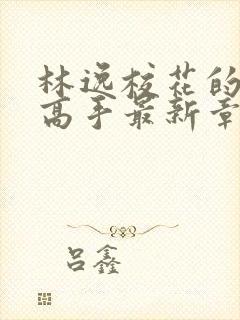 林逸校花的
高手最新章
吕鑫